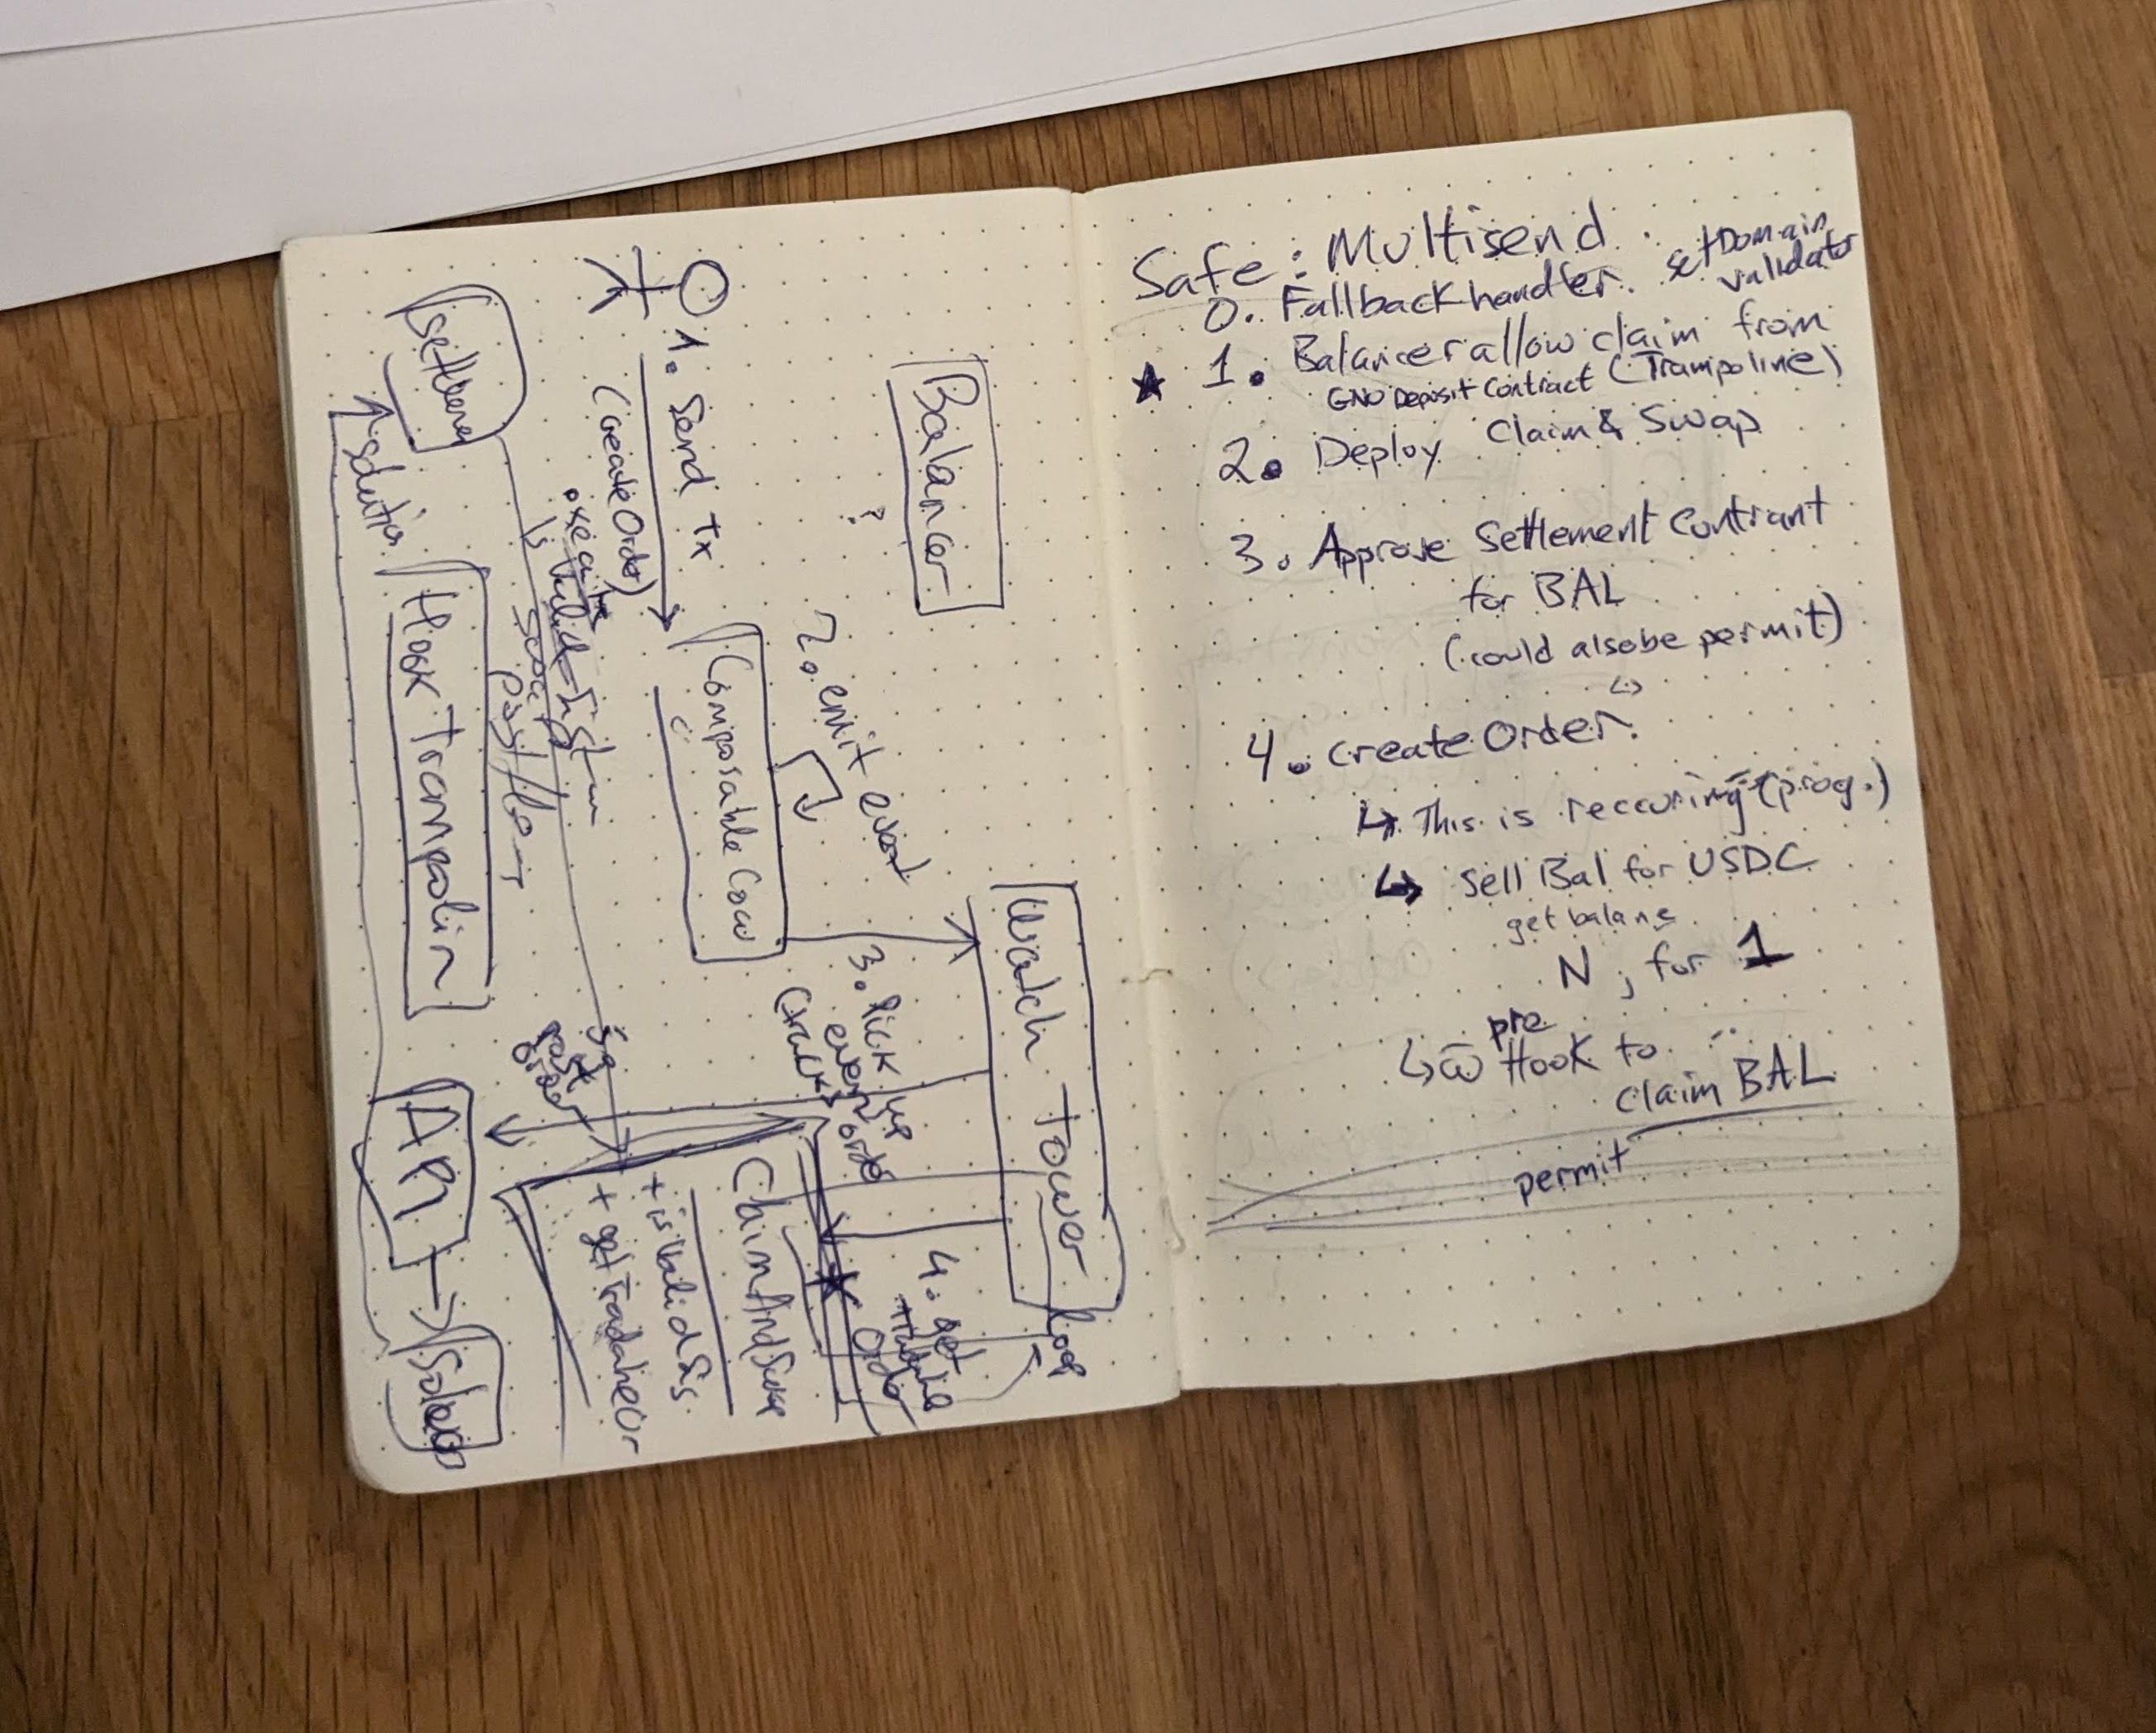 Balancer
?
1. Send tx
(create Order)
Composable Cow
2. emit event
Watch Tower
loop
3. Pick up
event
order
4. get
Order
ClaimAndSwap
+ isValidSig
+ getTradableOr
post
order
API
Solver
solution
execute
Hook Trampolin
Safe: Multisend
0. Fallback handler. setDomain
validator
1. Balancer allow claim from
GNO Deposit Contract (Trampoline)
2. Deploy Claim & Swap
3. Approve Settlement Contrant
for BAL
(could also be permit)
4. Create Order.
↳ This is reccuring (prog.)
↳ Sell Bal for USDC
get balane
N, for 1
pre
↳ Hook to
claim BAL
permit